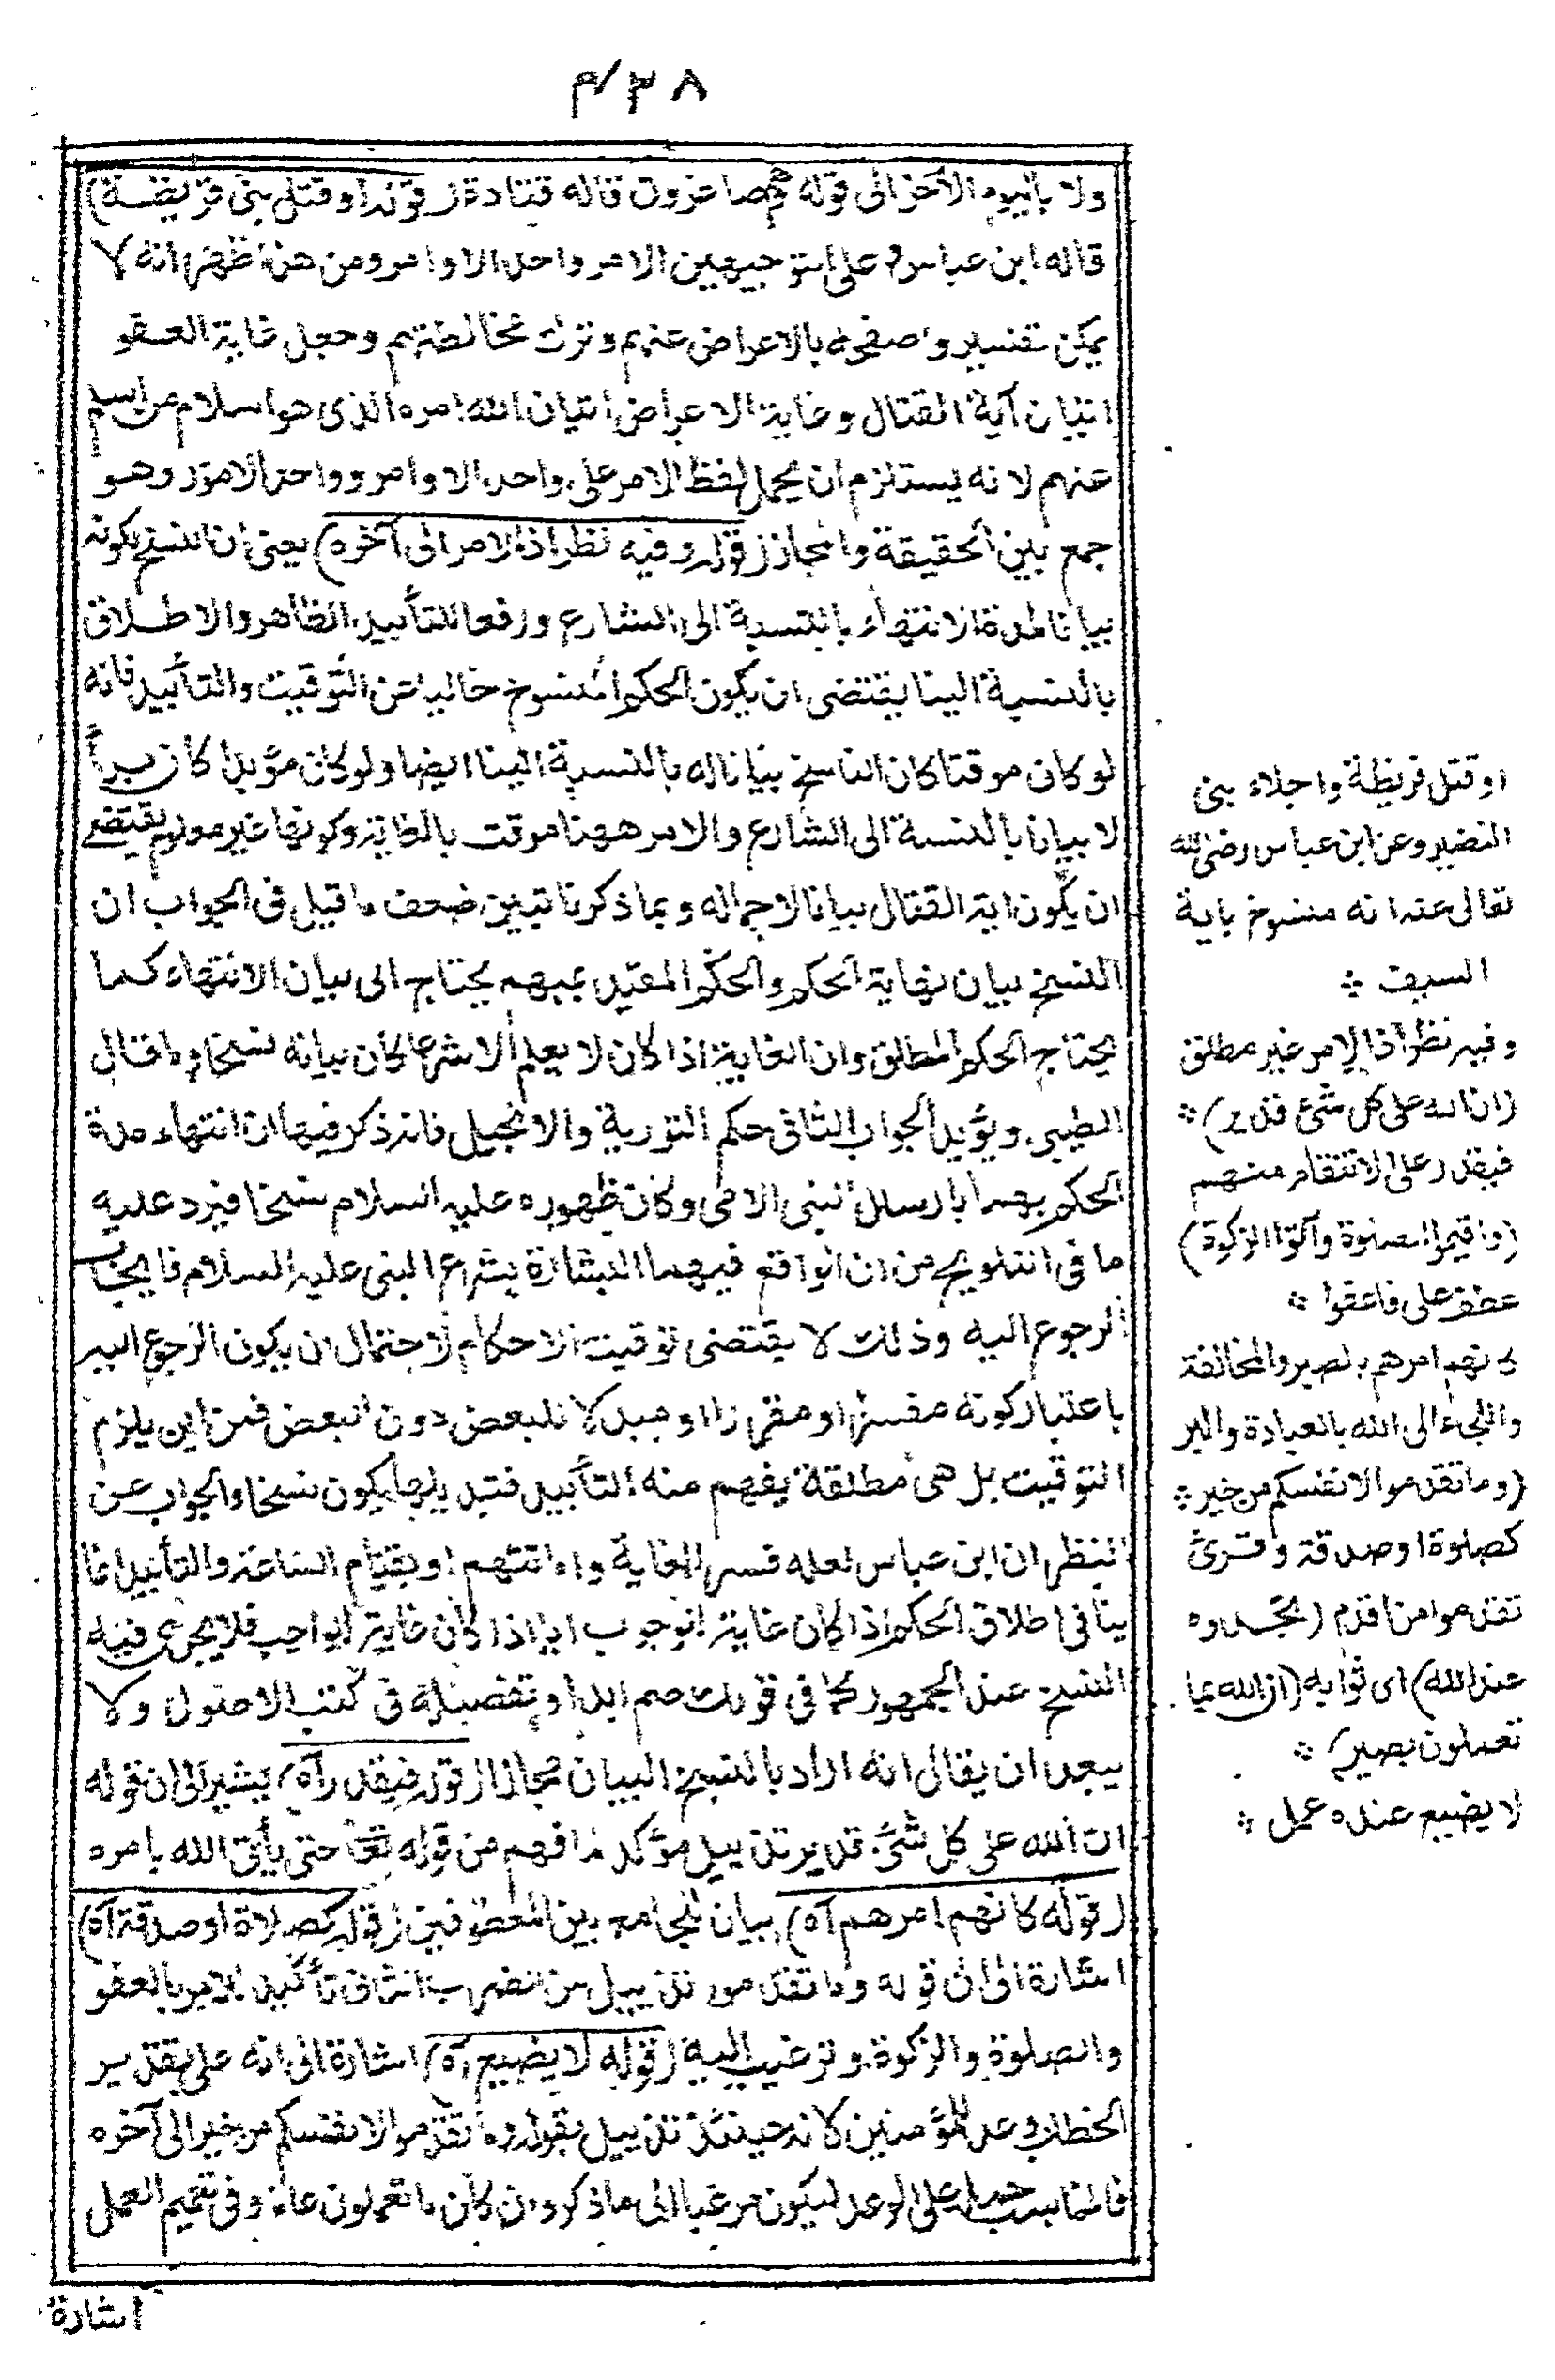 ٣٨م
ولا باليوم الآخر الى قوله وهم صاغرون قاله قتادة (قوله او قتل بنى قريضة)
قاله ابن عباس وعلى التوجيهين الامر واحد الاوامر ومن هذا ظهر انه لا
يمكن تفسير واصفحوا بالاعراض عنهم وترك مخالطتهم وجعل غاية العفو
اتيان آية القتال وغاية الاعراض اتيان الله امره الذى هو اسلام من اسلم
عنهم لانه يستلزم ان يحمل لفظ الامر على واحد الاوامر وواحد الامور وهو
جمع بين الحقيقة والمجاز (قوله وفيه نظر اذ الامر الى آخره) يعنى ان النسخ لكونه
بيانا لمدة الانتهاء بالنسبة الى الشارع ورفعا للتأبيد الظاهر والاطلاق
بالنسبة الينا يقتضى ان يكون الحكم المنسوخ خاليا عن التوقيت والتأبيد فانه
لو كان موقتا كان الناسخ بيانا له بالنسبة الينا ايضا ولو كان مؤبدا كان بدأ
لا بيانا بالنسبة الى الشارع والامر ههنا موقت بالغاية وكونها غير معلوم يقتضى
ان يكون اية القتال بيانا لاجماله وبما ذكرنا تبين ضعف ما قيل فى الجواب ان
النسخ بيان نهاية الحكم والحكم المقيد بمبهم يحتاج الى بيان الانتهاء كما
يحتاج الحكم المطلق وان الغاية اذا كان لا يعلم الا شرعا كان بيانه نسخا وما قال
الطيبى ويؤيد الجواب الثانى حكم التورية والانجيل فانه ذكر فيها ان انتهاء مدة
الحكم بهما بارسال النبى الامى وكان ظهوره عليه السلام نسخا فيرد عليه
ما فى التلويح من ان الواقع فيهما البشارة بشرع النبى عليه السلام وايجاب
الرجوع اليه وذلك لا يقتضى توقيت الاحكام لاحتمال ان يكون الرجوع اليه
باعتبار كونه مفسرا او مقررا او مبدلا للبعض دون البعض فمن اين يلزم
التوقيت بل هى مطلقة يفهم منه التأبيد فتبديلها يكون نسخا والجواب عن
النظر ان ابن عباس لعله فسر الغاية واماتتهم او بقيام الساعة والتأبيد انما
ينافى اطلاق الحكم اذا كان غاية الوجوب اما اذا كان غاية الواجب فلا يجرى فيه
النسخ عند الجمهور كما فى قولك صم ابدا وتفصيله فى كتب الاصول ولا
يبعد ان يقال انه اراد بالنسخ البيان مجازا (قوله فيقدر آه) يشير الى ان قوله
ان الله على كل شئ قدير تذييل مؤكد لما فهم من قوله تعا حتى يأتى الله بامره
(قوله كانهم امرهم آه) بيان للجامع بين المعطوفين (قوله كصلاة او صدقة آه)
اشارة الى ان قوله وما تقدموا تذييل من الضرب الثانى تأكيد للامر بالعفو
والصلوة والزكوة وترغيب اليه (قوله لا يضيع آه) اشارة الى انه على تقدير
الخطاب وعد للمؤمنين لانه حينئذ تذييل بقوله وما تقدموا لانفسكم من خير الى آخره
فالمناسب حمله على الوعد ليكون مرغبا الى ما ذكر وان كان ما تعملون عاما وفى تعميم العمل
اشارة
او قتل قريظة واجلاء بنى
النضير وعن ابن عباس رضى الله
تعالى عنه انه منسوخ باية
السيف ؞
وفيه نظر اذ الامر غير مطلق
(ان الله على كل شئ قدير) ؞
فيقدر على الانتقام منهم
(واقيموا الصلوة وآتوا الزكوة)
عطف على فاعفوا ؞
كانهم امرهم بالصبر والمخالفة
واللجاء الى الله بالعبادة والبر
(وما تقدموا لانفسكم من خير ؞
كصلوة او صدقة وقرئ
تقدموا من اقدم (تجدوه
عند الله) اى ثوابه (ان الله بما
تعملون بصير) ؞
لا يضيع عنده عمل ؞